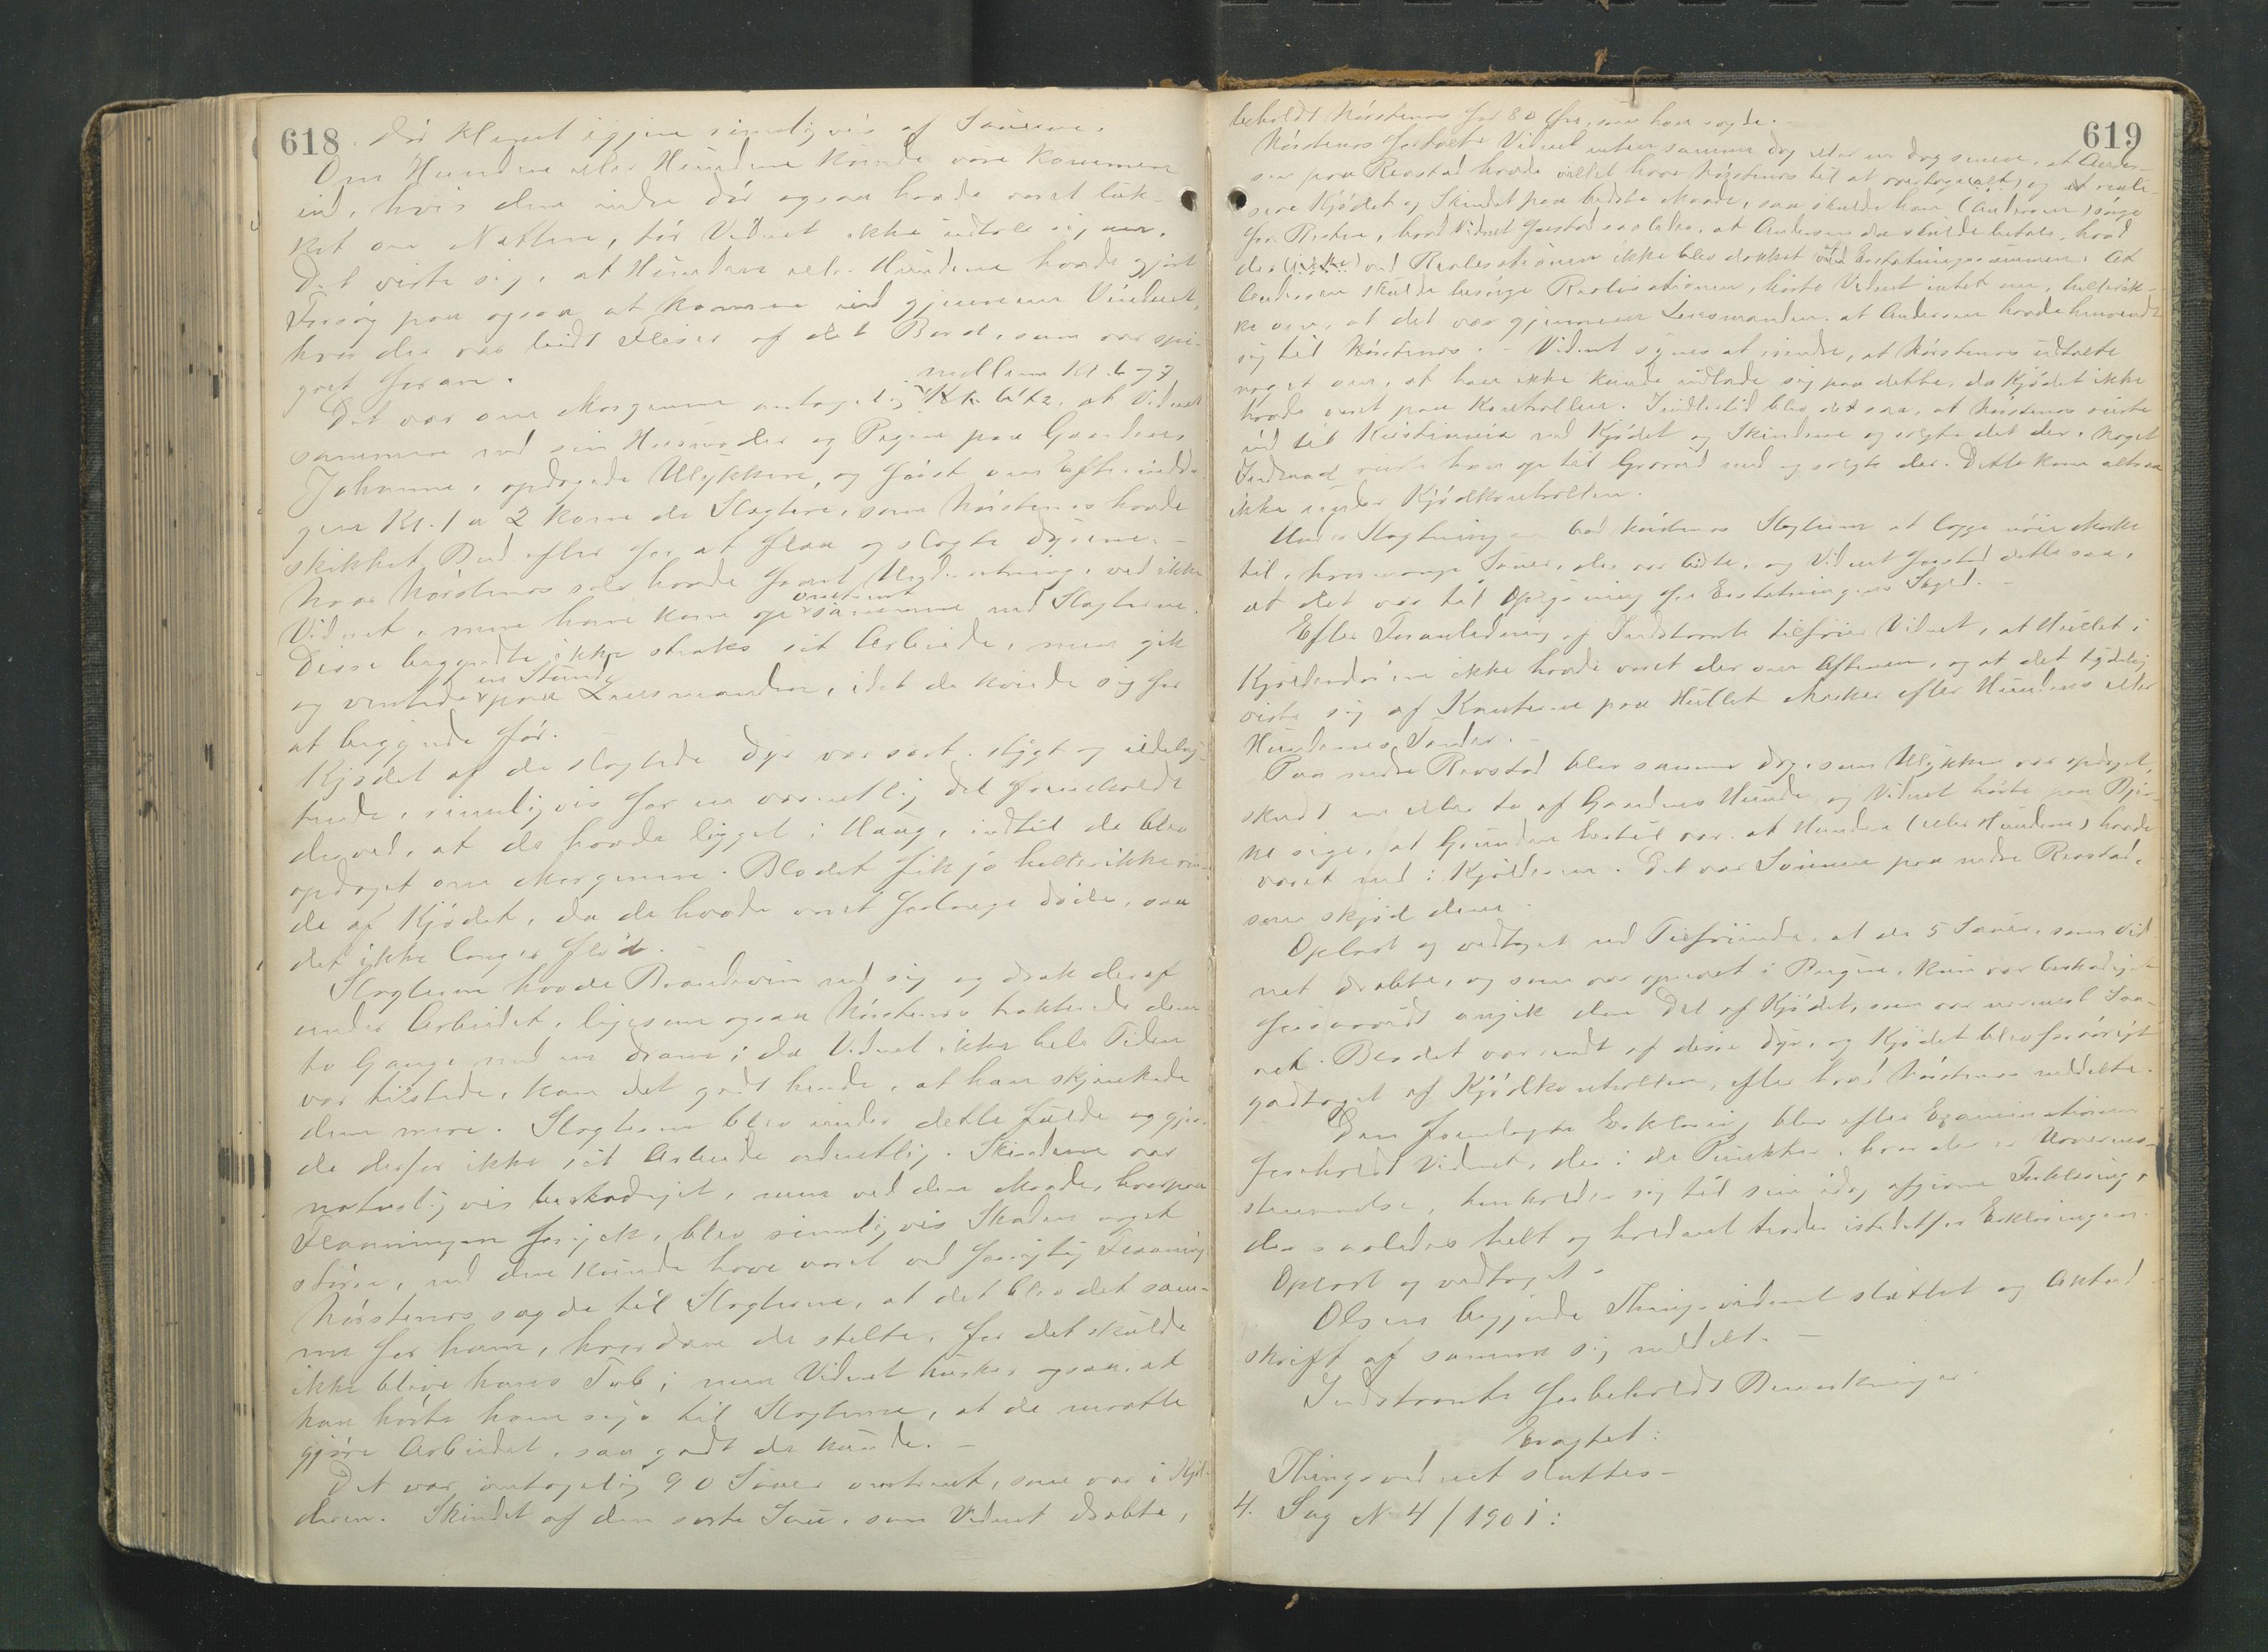 618
dør klemt igjen rimeligvis af Sauerne.
Om Hunden eller Hundene kunde være kommen
ind, hvis den indre dør ogsaa havde været luk-
ket om Natten, tør Vidnet ikke udtale sig om.
Det viste sig, at Hunden eller Hundene havde gjort
Forsøg paa ogsaa at komme ind gjennem Vinduet,
hvor der var bidt Fliser af det Bord, som var spi-
gret foran.
Det var om Morgenen antagelig mellem Kl. 6 og 7 at Vidnet
sammen med sin Husmoder og Pigen paa Gaarden
Johanne, opdagede Ulykken, og først om Eftermidda-
gen Kl. 1 a 2 kom de Slagtere, som Nørstenos havde
skikket Bud efter for at flaa og slagte Dyrene. -
Naar Nørstenos selv havde faaet Underretning, ved ikke
Vidnet, men han kom op omtrent sammen med Slagterne.
Disse begyndte ikke straks sit Arbeide, men gik
og ventede en Stund paa Lensmanden, idet de kviede sig for
at begynde før.
Kjødet af de slagtede Dyr var sort, stygt og ildelug-
tende, rimeligvis for en væsentlig Del foranledet
derved, at de havde ligget i Haug, indtil de blev
opdaget om Morgenen. Blodet fik jo heller ikke rin-
de af Kjødet, da de havde været forlænge døde, saa
det ikke længer flød. -
Slagterne havde Brændevin med sig og drak deraf
under Arbeidet, ligesom ogsaa Nørstenos trakterede dem
to Gange med en Dram; da Vidnet ikke hele Tiden
var tilstede, kan det godt hende, at han skjænkede
dem mere. Slagterne blev under dette fulde og gjor-
de derfor ikke sit Arbeide ordentlig. Skindene var
naturligvis beskadiget, men ved den Maade, hvorpaa
Flaaningen foregik, blev rimeligvis Skaden meget
større, end den kunde have været ved forsigtig Flaaning.
Nørstenos sagde til Slagterne, at det blev det sam-
me for ham, hvordan de stelte, for det skulde
ikke blive hans Tab; men Vidnet husker ogsaa, at
han hørte ham sige til Slagterne, at de maatte
gjøre Arbeidet, saa godt de kunde. -
Det var antagelig 90 Sauer omtrent, som var i Kjel-
deren. Skindet af den sorte Sau, som Vidnet dræbte,
619
beholdt Nørstenos for 80 Øre, som han sagde. -
Nørstenos fortalte Vidnet enten samme dag eller en dag senere, at Ander-
sen paa Revstad havde villet have Nørstenos til at overtage alt, og at reali-
sere Kjødet og Skindet paa bedste Maade, saa skulde han (Andersen) sørge
for Resten, hvad Vidnet forstod saaledes, at Andersen da skulde betale, hvad
der (ikke) ved Realisationen ikke blev dækket ved Erstatningssummen. At
Andersen skulde besørge Realisationen, hørte Vidnet intet om, heller ik-
ke om, at det var gjennem Lensmanden, at Andersen havde henvendt
sig til Nørstenos. - Vidnet synes at mindes, at Nørstenos udtalte
noget om, at han ikke kunde indlade sig paa dette, da Kjødet ikke
havde været paa Kontrollen. Imidlertid blev det saa, at Nørstenos reiste
ind til Kristiania med Kjødet og Skindene og solgte det der. Noget
Indmad reiste han op til Grorud med og solgte der. Dette kom altsaa
ikke under Kjødkontrollen.
Under Slagtningen bad Nørstenos Slagterne at lægge nøie Mærke
til, hvormange Sauer, der var bidte, og Vidnet forstod dette saa,
at det var til Opgjøring for Erstatningens Skyld. -
Efter Foranledning af Indstevnte tilføier Vidnet, at Hullet i
Kjælderdøren ikke havde været der om Aftenen, og at det tydelig
viste sig af Kanterne paa Hullet Mærker efter Hundens eller
Hundenes Tænder. -
Paa nedre Revstad blev samme Dag, som Ulykken var opdaget,
skudt en eller to af Gaardens Hunde, og Vidnet hørte paa Bjer-
ke sige, at Grunden hertil var, at Hunden (eller Hundene) havde
været med i Kjælderen. Det var Sønnen paa nedre Revstad,
som skjød dem.
Oplæst og vedtaget med Tilføiende, at de 5 Sauer, som Vid-
net dræbte, og som var opreist i Bingen, kun var beskadiget
forsaavidt angik den Del af Kjødet, som var nærmest Saa-
ret. Blodet var rendt af disse Dyr, og Kjødet blev forøvrigt
godtaget af Kjødkontrollen, efter hvad Nørstenos meddelte.
Den fremlagte Erklæring blev efter Examinationen
foreholdt Vidnet, der i de Punkter, hvor der er Uoverens-
stemmelse, henholder sig til sin idag afgivne Forklaring,
der saaledes helt og holdent træder istedetfor Erklæringen.
Oplæst og vedtaget. -
Olsen begjærede Thingsvidnet sluttet og Akter-
skrift af samme sig meddelt. -
Indstevnte forbeholdt Bemærkninger.
Eragtet:
Thingsvidnet sluttes -
4. Sag N. 4/1901: